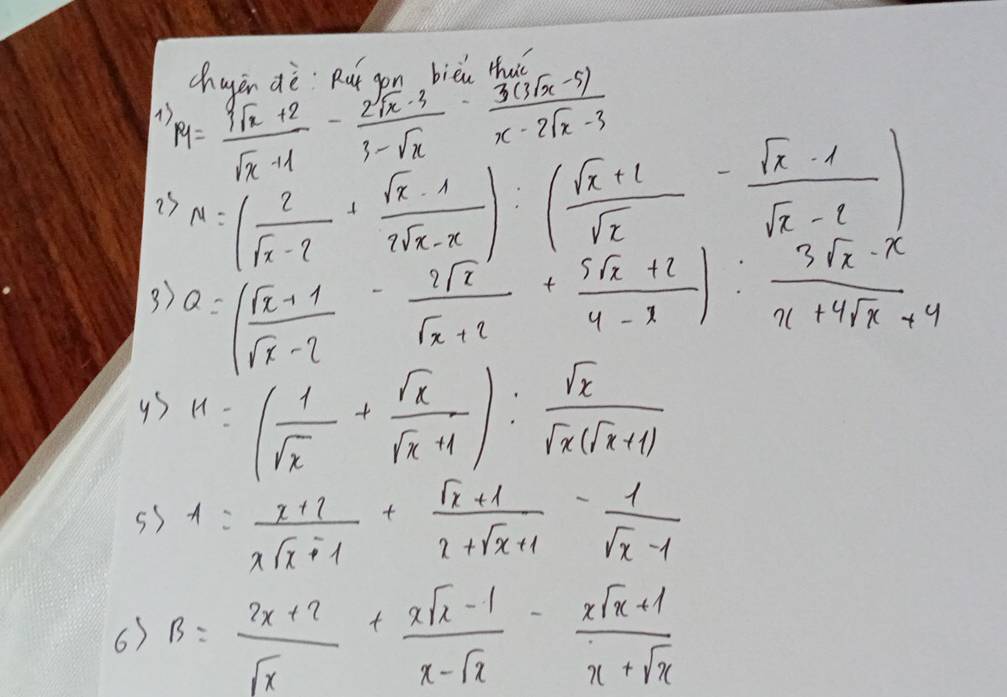 chuyên đề: Rút gọn biểu thức
1) M = (3√x + 2)/(√x + 1) - (2√x - 3)/(3 - √x) - (3(3√x - 5))/(x - 2√x - 3)
2) N = (2/(√x - 2) + (√x - 1)/(2√x - x)) : ((√x + 2)/√x - (√x - 1)/(√x - 2))
3) Q = ((√x + 1)/(√x - 2) - 2√x/(√x + 2) + (5√x + 2)/(4 - x)) : (3√x - x)/(x + 4√x + 4)
4) H = (1/√x + √x/(√x + 1)) : √x/(√x(√x + 1))
5) A = (x + 2)/(x√x - 1) + (√x + 1)/(x + √x + 1) - 1/(√x - 1)
6) B = (2x + 2)/√x + (x√x - 1)/(x - √x) - (x√x + 1)/(x + √x)